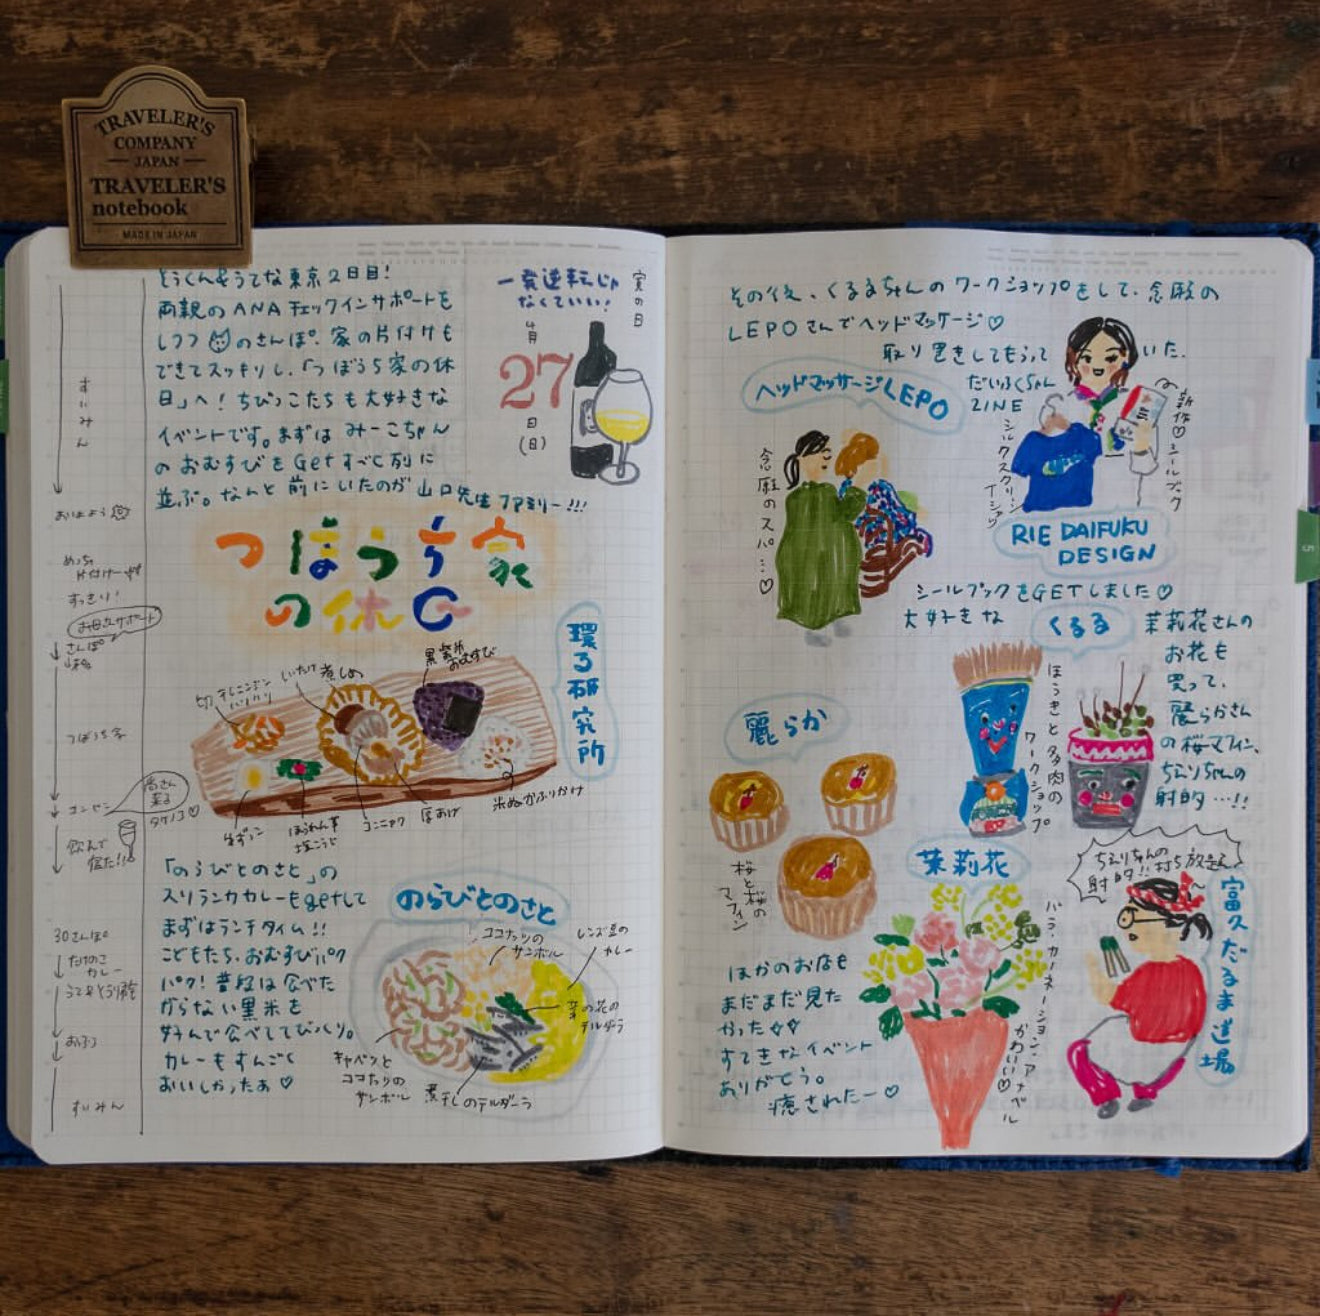 TRAVELER'S
COMPANY
JAPAN
TRAVELER'S
notebook
MADE IN JAPAN
とうくん&うてな東京2日目!
両親のANAチェックインサポートを
しつつ のさんぽ。家の片付けも
できてスッキリし、「つぼうち家の休
日」へ! ちびっこたちも大好きな
イベントです。まずは みーこちゃん
のおむすびをGetすべく列に
並ぶ。なんと前にいたのが山口先生ファミリー!!!
一発逆転じゃ
なくていい!
4月
27
日
(日)
すいみん
おはよう
めっちゃ
片付けー
すっきり!
さんぽ
つぼうち家
コンビン
タケノコ♡
飲んで
寝た!!
30さんぽ
たけのこ
カレー
おふろ
すいみん
つぼうち家
の休日
環る研究所
黒米
おむすび
煮しめ
しいたけ
切干しニンジン
ほうれん草
塩こうじ
コンニャク
厚あげ
米ぬかふりかけ
「のらびとのさと」の
スリランカカレーもgetして
まずはランチタイム!!
こどもたち、おむすびパク
パク! 普段は食べた
がらない黒米を
好んで食べててびっくり。
カレーもすんごく
おいしかったぁ♡
のらびとのさと
ココナッツの
サンボル
レンズ豆の
カレー
菜の花の
テルダーラ
キャベツと
ココナツの
サンボル
煮干しのテルダーラ
その後、くるるちゃんのワークショップをして、念願の
LEPOさんでヘッドマッサージ♡
取り置きしてもらって
いた
だいふくちゃん
ZINE
ヘッドマッサージLEPO
念願のスパ…♡
シルクスクリーン
Tシャツ
新作♡シールブック
RIE DAIFUKU
DESIGN
シールブックをGETしました♡
大好きな
くるる
茉莉花さんの
お花も
買って、
麗らかさん
の桜マフィン、
ちえりちゃんの
射的…!!
ほうきと多肉の
ワークショップ
麗らか
桜と桜の
マフィン
茉莉花
バラ・カーネーション・アナベル
かわいい♡
ちえりちゃんの
射的!!打ち放題
富久だるま道場
ほかのお店も
まだまだ見た
かった
すてきなイベント
ありがとう。
癒されたー♡